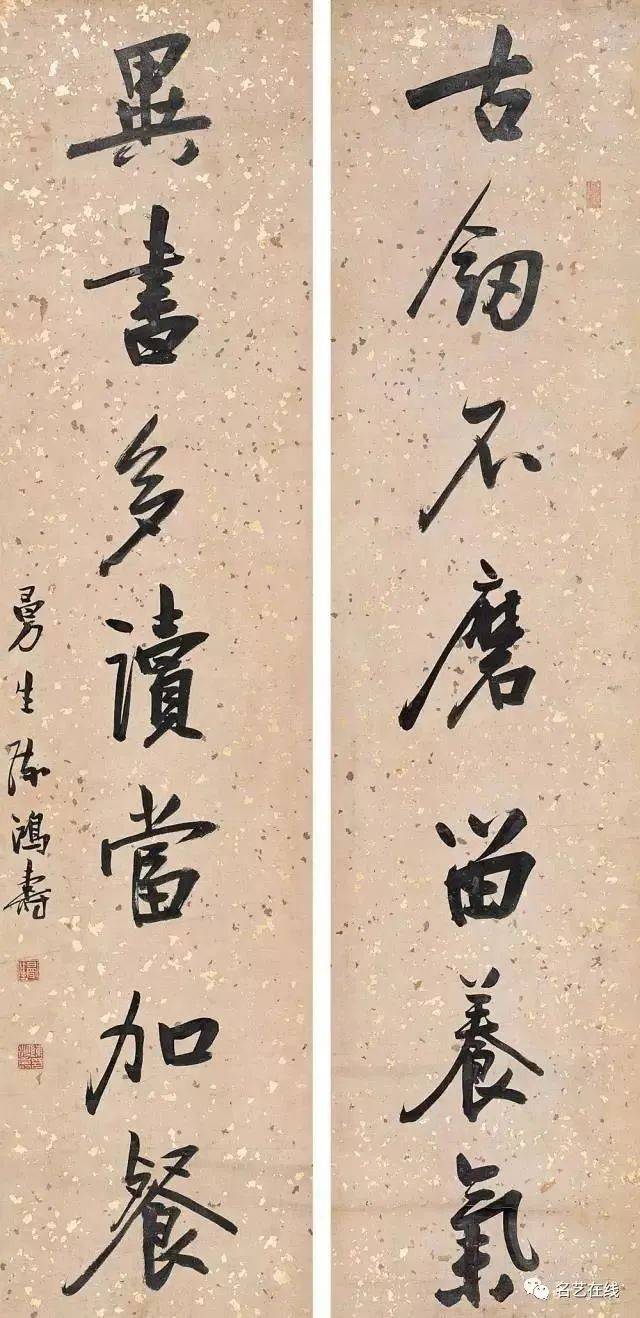 古劎不磨留養氣
異書多讀當加餐
曼生陳鴻壽
名艺在线